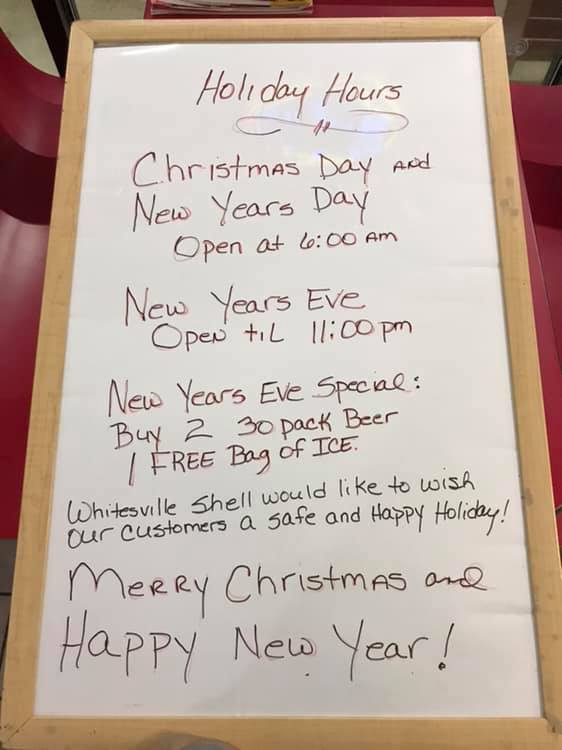 Holiday Hours
Christmas Day and
New Years Day
Open at 6:00 AM
New Years Eve
Open til 11:00 pm
New Years Eve Special:
Buy 2 30 pack Beer
1 FREE Bag of ICE.
Whitesville Shell would like to wish
our customers a safe and Happy Holiday!
Merry Christmas and
Happy New Year!